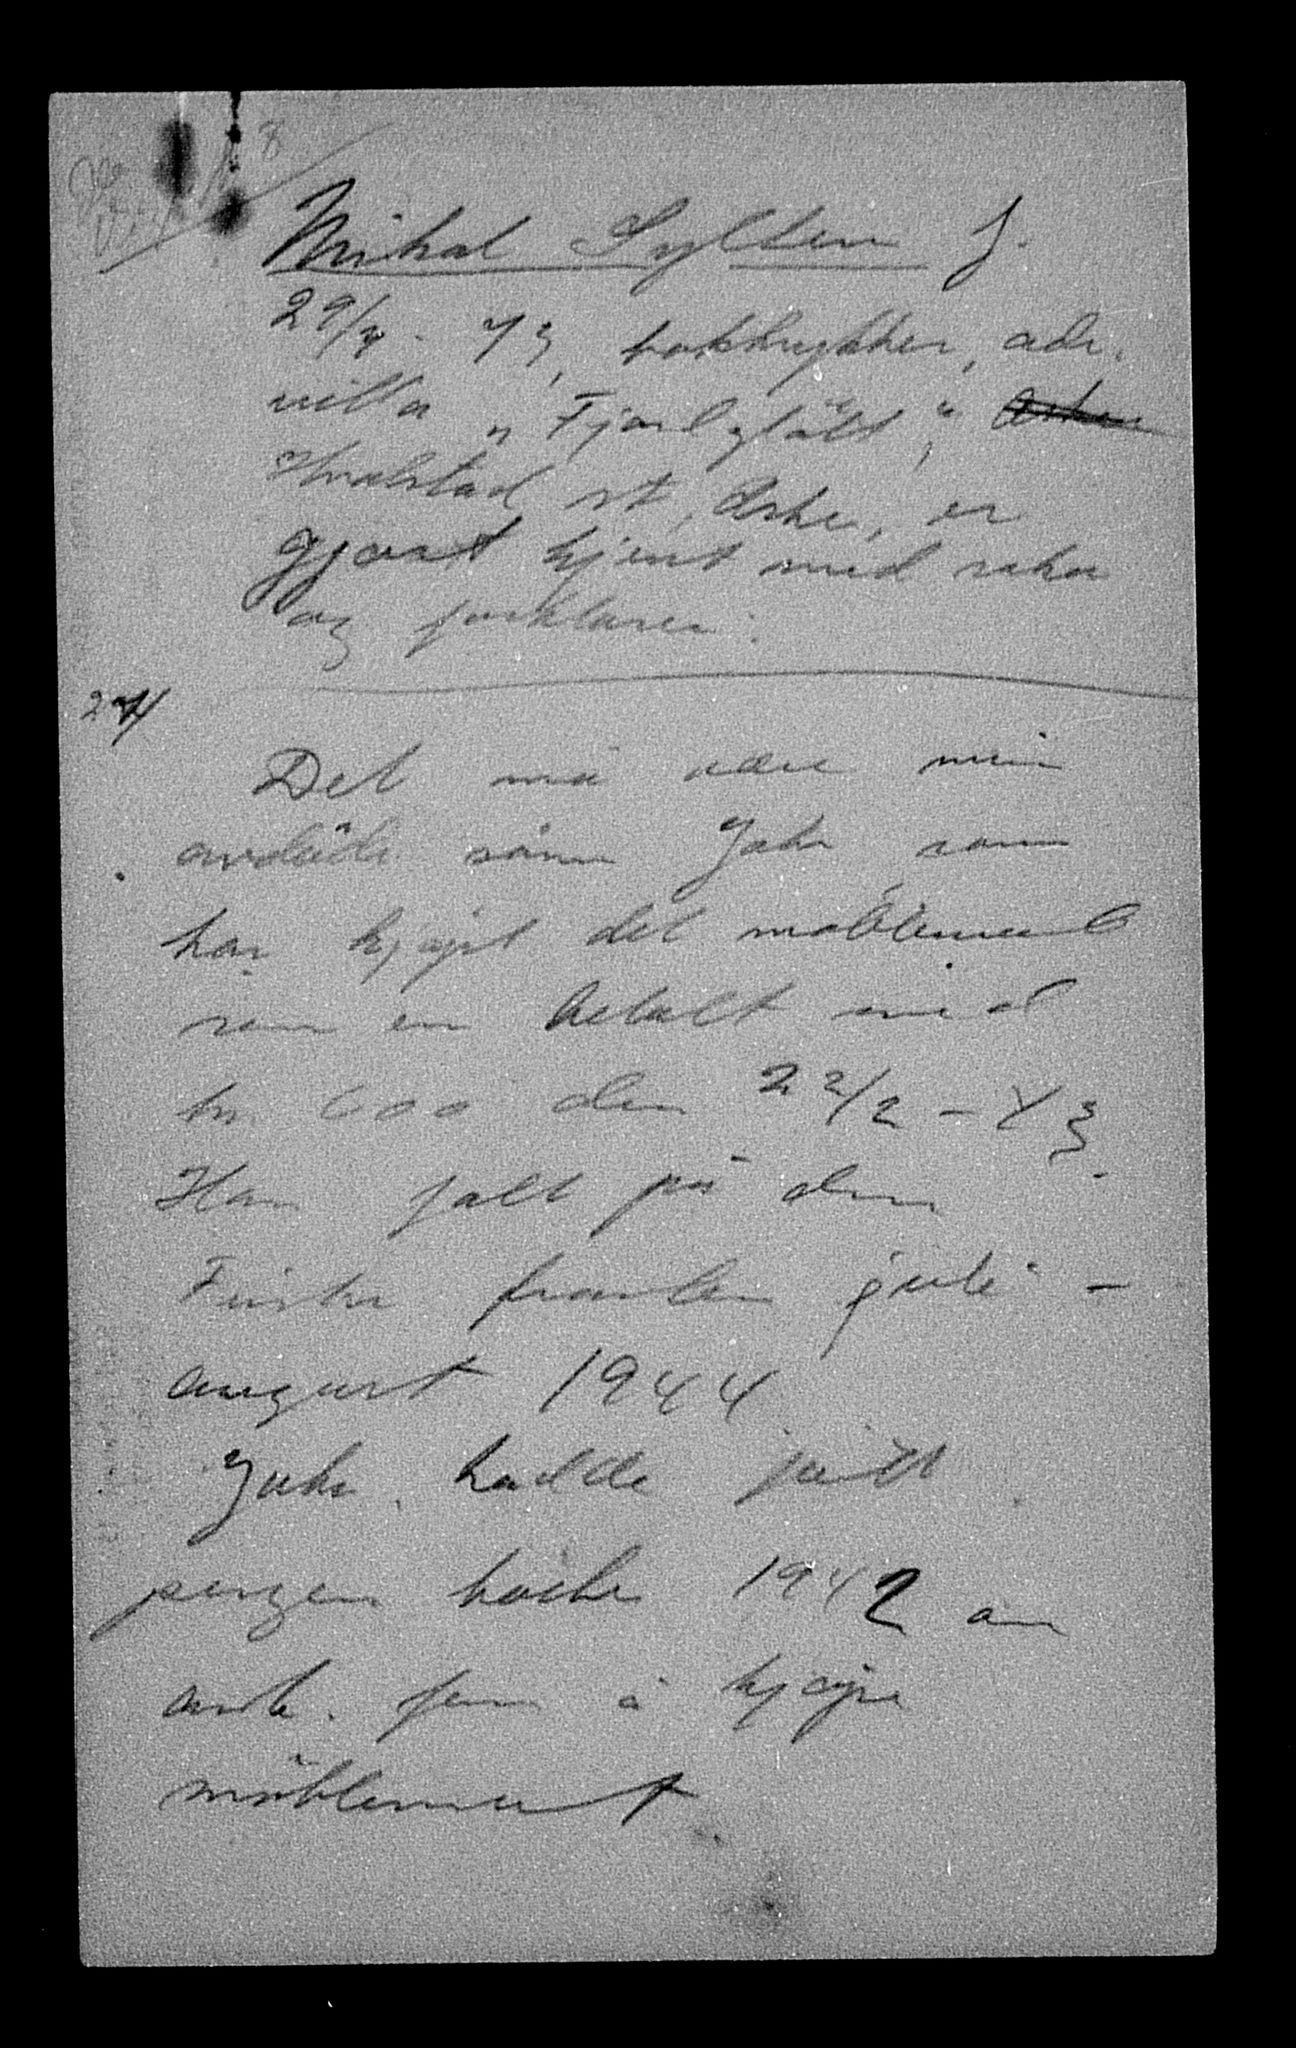 Mikal Sylten f.
29/7 - 73, boktrykker, adr.
villa "Fjordgløtt," Asker
Hvalstad st, Asker, er
gjort kjent med saken
og forklarer:
Det må være min
avdøde sønn John som
har kjøpt det møblement
som er betalt med
kr 600 den 22/2 - 43.
Han falt på den
Finske fronten juli -
august 1944
John hadde fått
penger høsten 1942 av
for å kjøpe
møblement